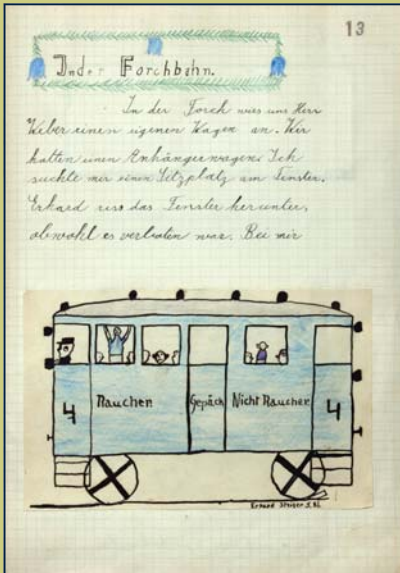 13
In der Forchbahn.
In der Forch wies uns Herr
Weber einen eigenen Wagen an. Wir
hatten einen Anhängerwagen. Ich
suchte mir einen Sitzplatz am Fenster.
Erhard riss das Fenster herunter,
obwohl es verboten war. Bei mir
4 Raucher Gepäck Nicht Raucher 4
Erhard